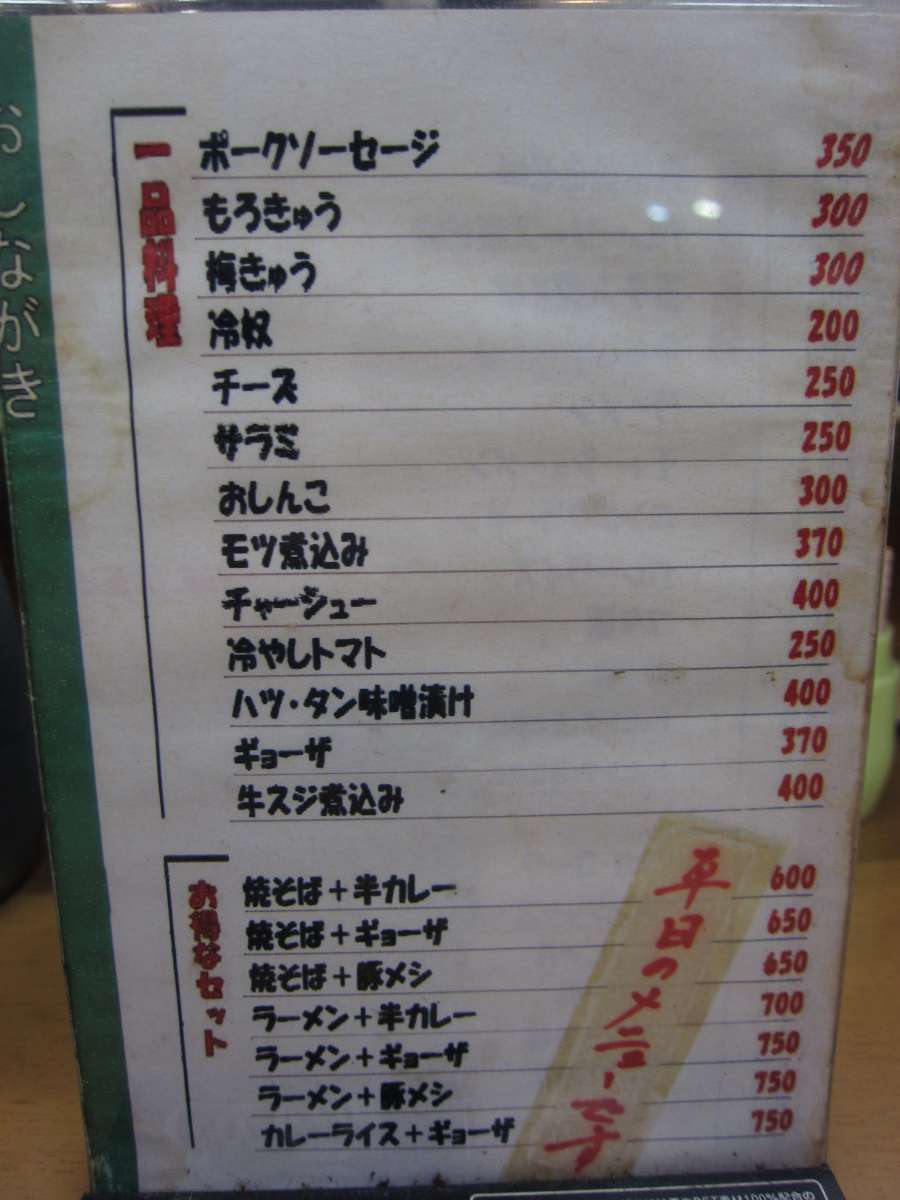 おしながき
一品料理
ポークソーセージ 350
もろきゅう 300
梅きゅう 300
冷奴 200
チーズ 250
サラミ 250
おしんこ 300
モツ煮込み 370
チャーシュー 400
冷やしトマト 250
ハツ・タン味噌漬け 400
ギョーザ 370
牛スジ煮込み 400
お得なセット
焼そば+半カレー 600
焼そば+ギョーザ 650
焼そば+豚メシ 650
ラーメン+半カレー 700
ラーメン+ギョーザ 750
ラーメン+豚メシ 750
カレーライス+ギョーザ 750
平日のメニューです